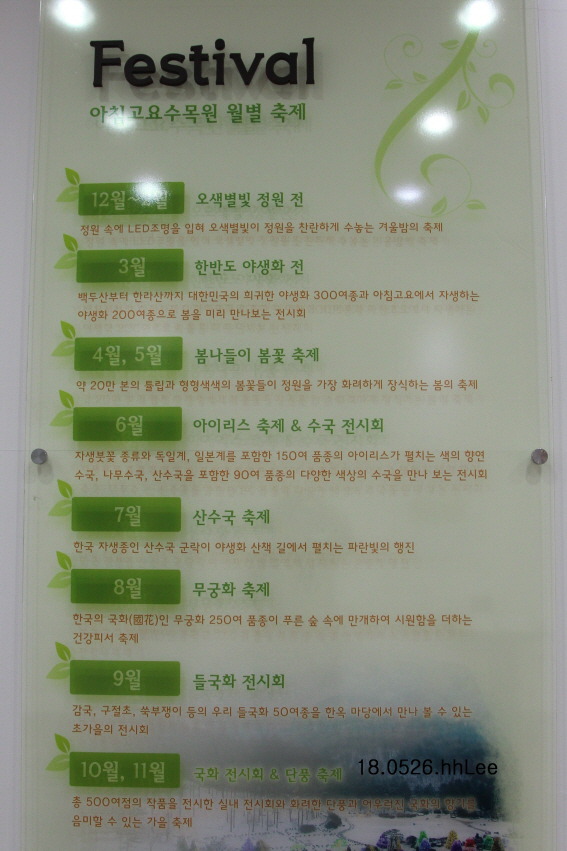 Festival
아침고요수목원 월별 축제
12월~ 월
오색별빛 정원 전
정원 속에 LED조명을 입혀 오색별빛이 정원을 찬란하게 수놓는 겨울밤의 축제
3월
한반도 야생화 전
백두산부터 한라산까지 대한민국의 희귀한 야생화 300여종과 아침고요에서 자생하는
야생화 200여종으로 봄을 미리 만나보는 전시회
4월, 5월
봄나들이 봄꽃 축제
약 20만 본의 튤립과 형형색색의 봄꽃들이 정원을 가장 화려하게 장식하는 봄의 축제
6월
아이리스 축제 & 수국 전시회
자생붓꽃 종류와 독일계, 일본계를 포함한 150여 품종의 아이리스가 펼치는 색의 향연
수국, 나무수국, 산수국을 포함한 90여 품종의 다양한 색상의 수국을 만나 보는 전시회
7월
산수국 축제
한국 자생종인 산수국 군락이 야생화 산책 길에서 펼치는 파란빛의 행진
8월
무궁화 축제
한국의 국화(國花)인 무궁화 250여 품종이 푸른 숲 속에 만개하여 시원함을 더하는
건강피서 축제
9월
들국화 전시회
감국, 구절초, 쑥부쟁이 등의 우리 들국화 50여종을 한옥 마당에서 만나 볼 수 있는
초가을의 전시회
10월, 11월
국화 전시회 & 단풍 축제
18.0526.hhLee
총 500여점의 작품을 전시한 실내 전시회와 화려한 단풍과 어우러진 국화의
음미할 수 있는 가을 축제